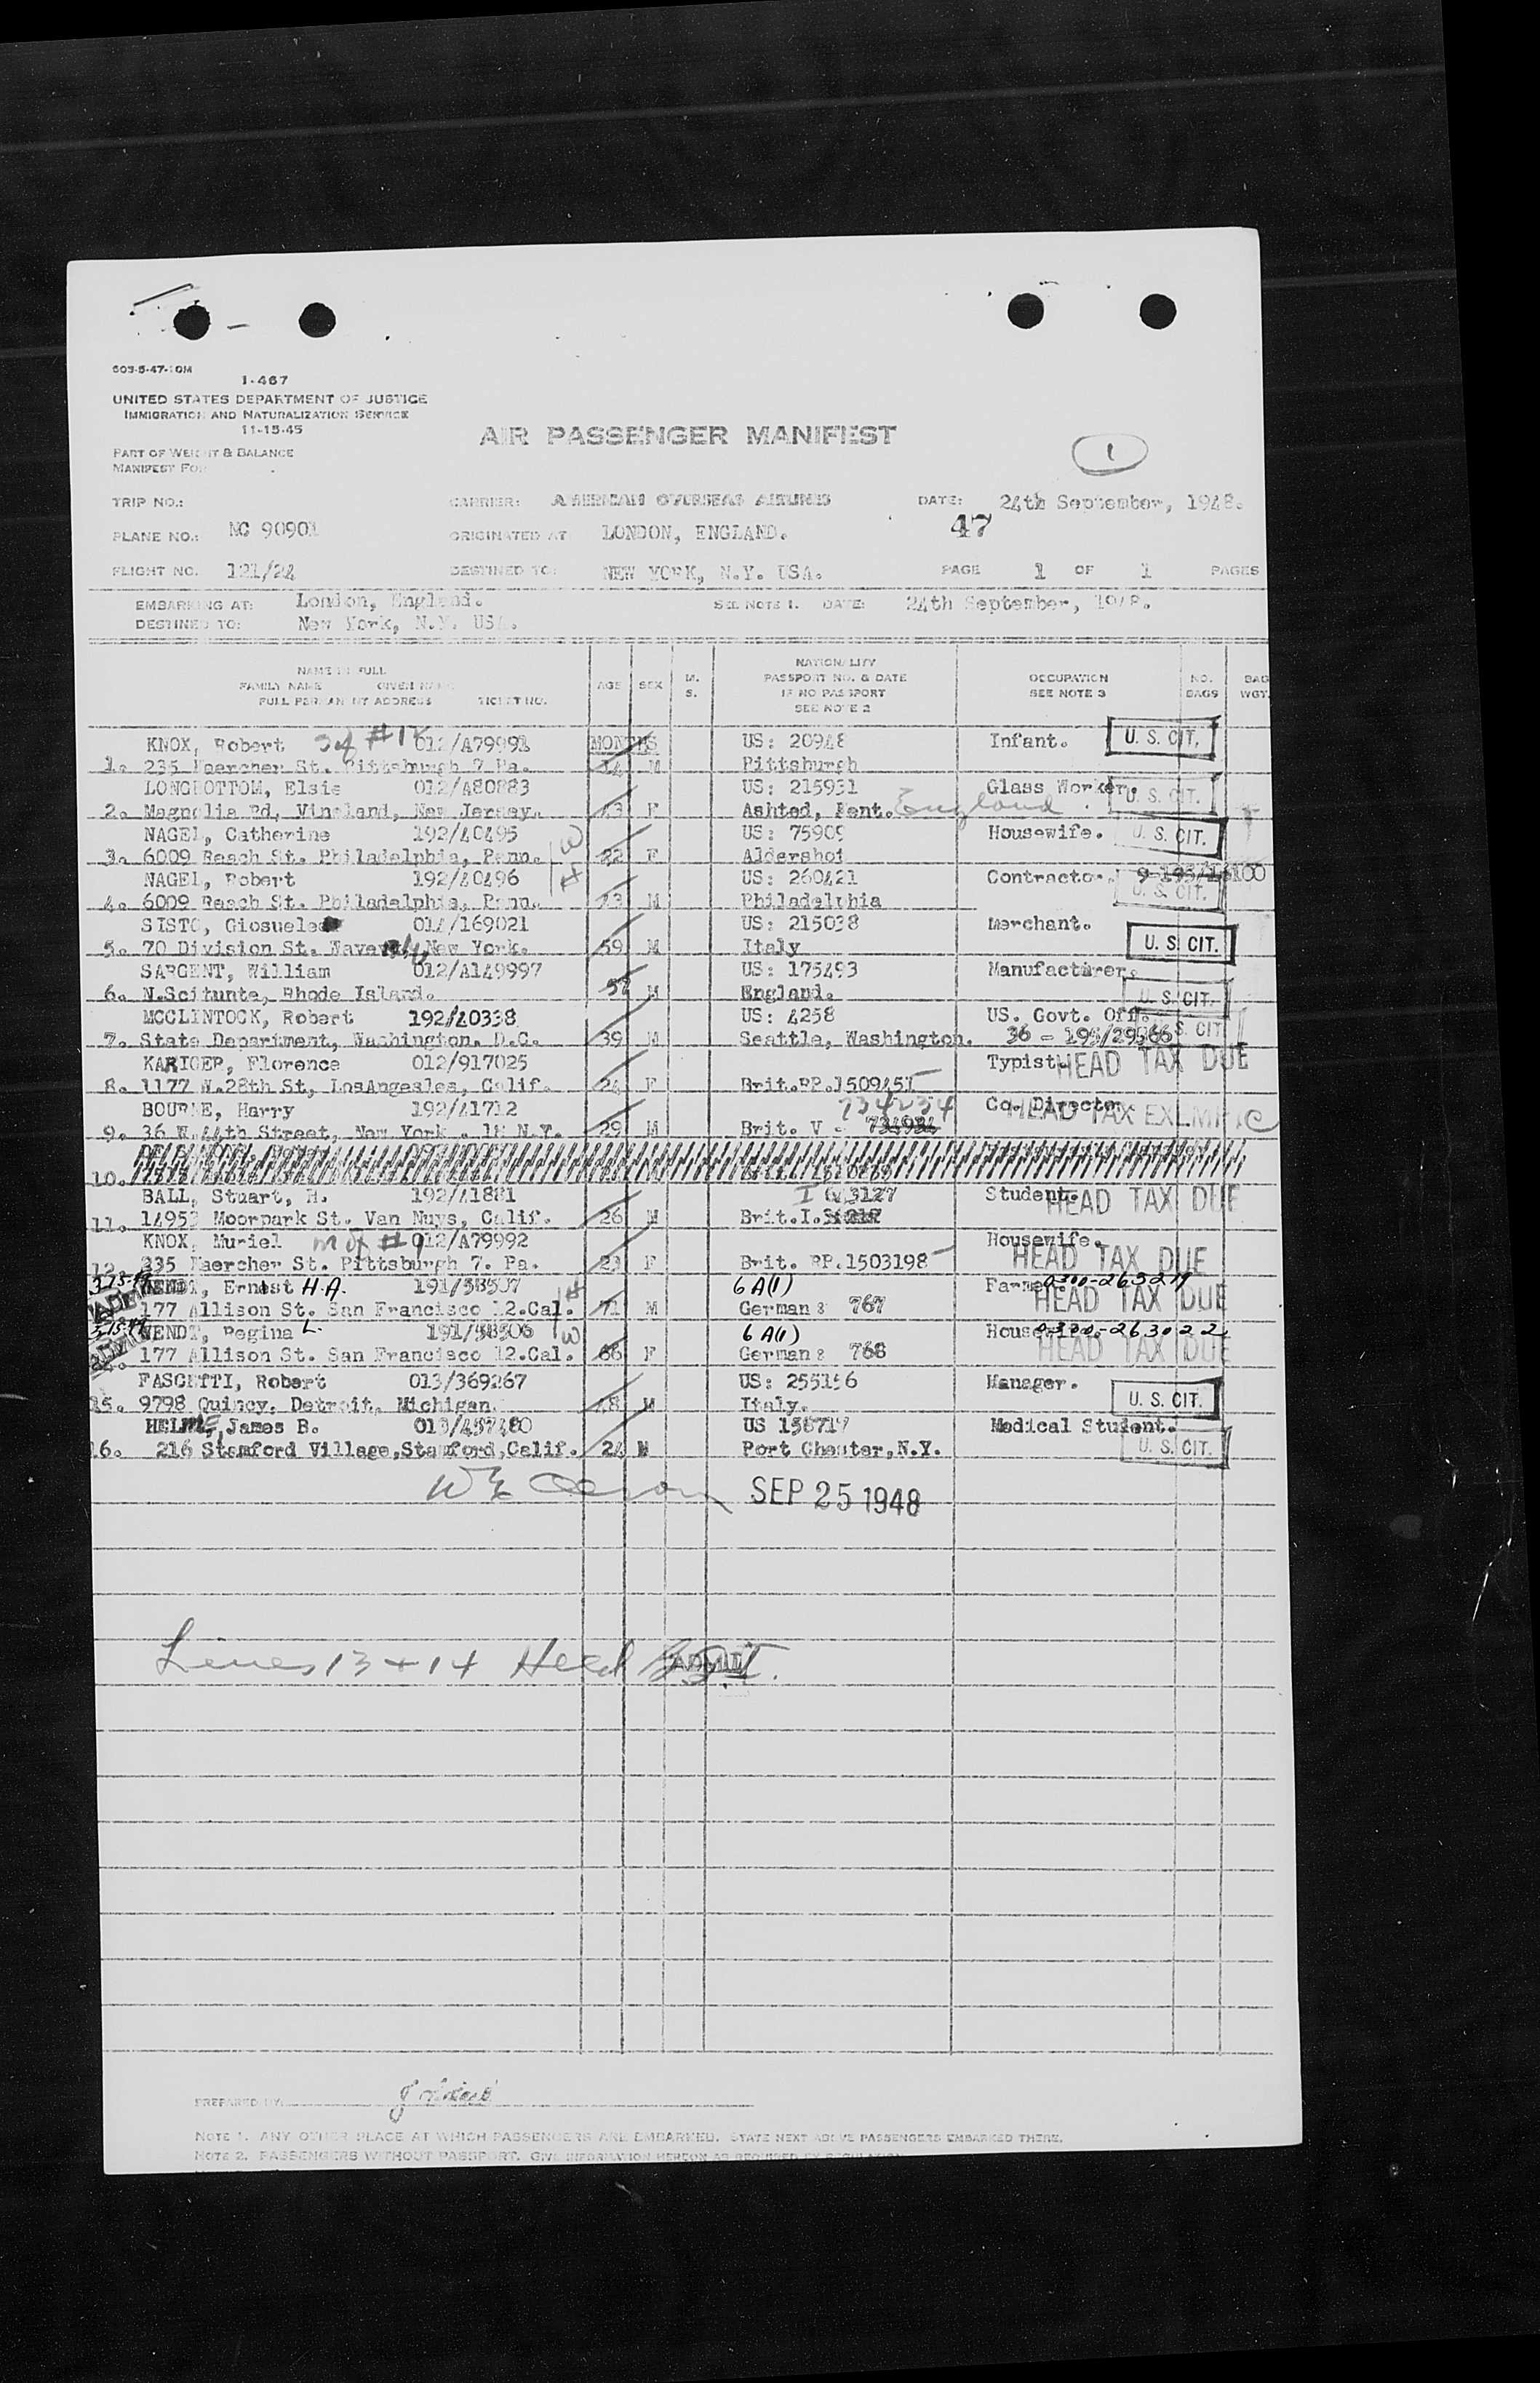 603-5-47-10M
I-467
UNITED STATES DEPARTMENT OF JUSTICE
IMMIGRATION AND NATURALIZATION SERVICE
11-15-45
AIR PASSENGER MANIFEST
1
PART OF WEIGHT & BALANCE
MANIFEST FOR
TRIP NO.: CARRIER: AMERICAN OVERSEAS AIRLINES DATE: 24th September, 1948.
PLANE NO.: NC 90901 ORIGINATED AT LONDON, ENGLAND. 47
FLIGHT NO. 121/24 DESTINED TO: NEW YORK, N.Y. USA. PAGE 1 OF 1 PAGES
EMBARKING AT: London, England. SEE NOTE 1. DATE: 24th September, 1948.
DESTINED TO: New York, N.Y. USA.
NAME IN FULL
FAMILY NAME GIVEN NAME
FULL PERMANENT ADDRESS TICKET NO.
AGE SEX M. S.
NATIONALITY
PASSPORT NO. & DATE
IF NO PASSPORT
SEE NOTE 2
OCCUPATION
SEE NOTE 3
NO. BAGS
BAG WGT.
KNOX, Robert #12 012/A79991 MONTHS US: 20948 Infant. U. S. CIT.
1. 235 Maercher St. Pittsburgh 7 Pa. 14 M Pittsburgh
LONGBOTTOM, Elsie 012/A80883 US: 215931 Glass Worker. U. S. CIT.
2. Magnolia Rd, Vineland, New Jersey. 43 F Ashted, Kent. England
NAGEL, Catherine 192/40495 W US: 75909 Housewife. U. S. CIT.
3. 6009 Reach St. Philadelphia, Penn. 22 F Aldershot
NAGEL, Robert 192/40496 H US: 260421 Contractor. U. S. CIT.
4. 6009 Reach St. Philadelphia, Penn. 23 M Philadelphia
SISTO, Giosuele 014/169021 US: 215038 Merchant. U. S. CIT.
5. 70 Division St. Waverly New York. 59 M Italy
SARGENT, William 012/A149997 US: 175493 Manufacturer. U. S. CIT.
6. N.Scitunte, Rhode Island. 57 M England.
MCCLINTOCK, Robert 192/40338 US: 4258 US. Govt. Off. U. S. CIT.
7. State Department, Washington. D.C. 39 M Seattle, Washington. 36 - 195/29566
KARIGER, Florence 012/917025 Typist. HEAD TAX DUE
8. 1177 W.28th St, LosAngesles, Calif. 24 F Brit.PP.1509451
BOURNE, Harry 192/41712 734234 Co. Director HEAD TAX EXEMPT
9. 36 W.44th Street, New York . 18 N.Y. 29 M Brit. V - 734934
10.
BALL, Stuart, H. 192/41881 I 3127 Student. HEAD TAX DUE
11. 14953 Moorpark St. Van Nuys, Calif. 26 M Brit.I.
KNOX, Muriel 012/A79992 Housewife. HEAD TAX DUE
12. 235 Maercher St. Pittsburgh 7. Pa. 23 F Brit. PP.1503198
WENDT, Ernest H.A. 191/58507 H 6A(1) Farmer HEAD TAX DUE
177 Allison St. San Francisco 12.Cal. 71 M German: 767
WENDT, Regina L. 191/58506 W 6A(1) Housewife. 0300-263022
177 Allison St. San Francisco 12.Cal. 66 F German: 768 HEAD TAX DUE
FASCETTI, Robert 013/369267 US: 255156 Manager. U. S. CIT.
15. 9798 Quincy. Detroit, Michigan. 48 M Italy.
HELME, James B. 013/457480 US 156717 Medical Student. U. S. CIT.
16. 216 Stamford Village,Stamford,Calif. 24 M Port Chester,N.Y.
SEP 25 1948
Lines 13 + 14 Held ADMIT
PREPARED BY:
NOTE 1. ANY OTHER PLACE AT WHICH PASSENGERS ARE EMBARKED. STATE NEXT ABOVE PASSENGERS EMBARKED THERE.
NOTE 2. PASSENGERS WITHOUT PASSPORT. GIVE INFORMATION HEREON AS REQUIRED BY REGULATION